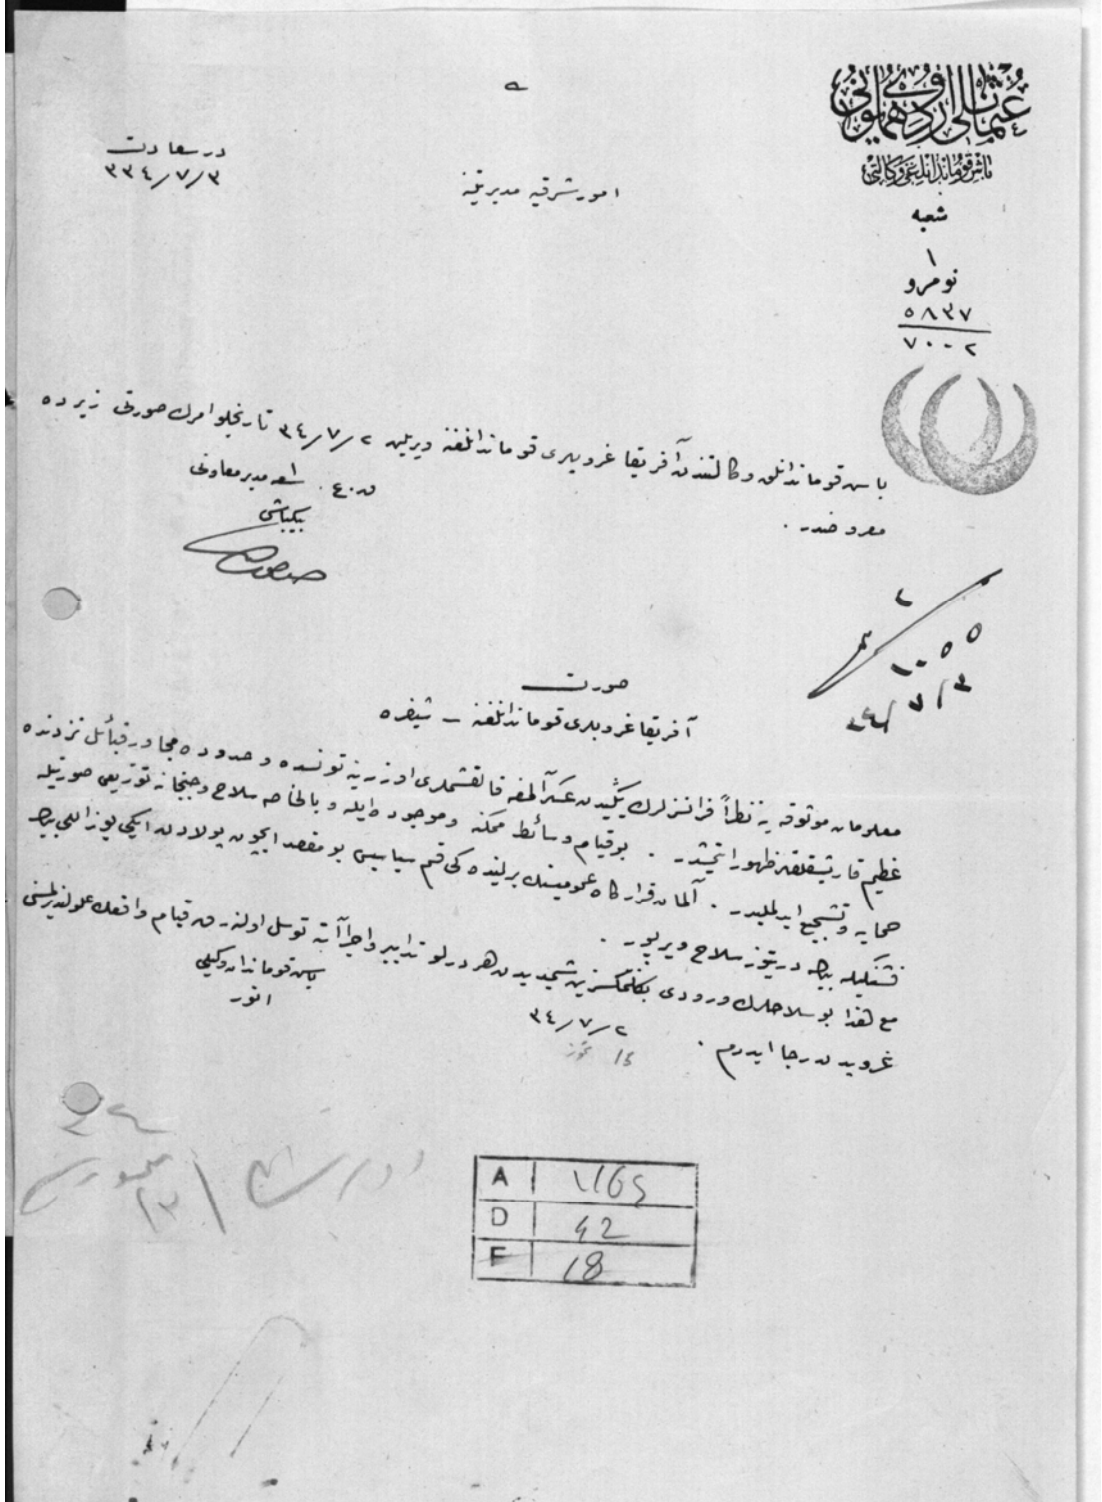 عثمانلی اردوی همایونی
باش قوماندانلغی وکالتی
شعبه
١
نومرو
٥٨٣٧
٧٠٠٢
در سعادت
٣٣٤/٧/٣
امور شرقیه مدیریتنه
باش قوماندانلق وکالتندن آفریقا غروپلری قوماندانلغنه ویریلن ٣٤/٧/٢ تاریخلو امرك صورتی زیرده
معروضدر .
شعبه مدیر معاونی
بیکباشی
١٠٥٥
٣٤/٧/٣
صورت
آفریقا غروپلری قوماندانلغنه – شیفره
معلومات موثوقه یه نظراً فرانسزلرك یکیدن عسکر آلمغه قالقشملری اوزرینه تونسده و حدوده مجاور قبائل نزدنده
عظیم قاریشقلقلر ظهور ایتمشدر . بو قیام وسائط ممکنه و موجوده ایله و بالخاصه سلاح و جبخانه توزیعی صورتیله
حمایه و تشجیع ایدلملیدر . آلمان قرارکاه عمومیسنك برلینده کی قسم سیاسیسی بو مقصد ایچون پولادن ایکی یوز اللی بیك
فشنکیله بیك درتیوز سلاح ویریور .
مع هذا بو سلاحلرك ورودی بکلنمکسزین شیمدیدن هر درلو تدابیر و اجراآته توسل اولنه رق قیام واقعك علولندیرلمسنی
غروپدن رجا ایدرم .
٣٤/٧/٢
باش قوماندان وکیلی
انور
A ١/١65
D 42
F 18